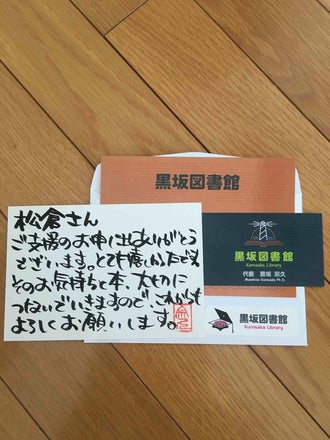 黒坂図書館
松倉さん
ご支援のお申し出ありがとう
ございます。とても嬉しかったです
そのお気持ちと本、大切に
つないでいきますので これからも
よろしくお願いします。
黒坂図書館
Kurosaka Library
代表 黒坂 宗久
Munehisa Kurosaka Ph.D.
黒坂図書館
Kurosaka Library